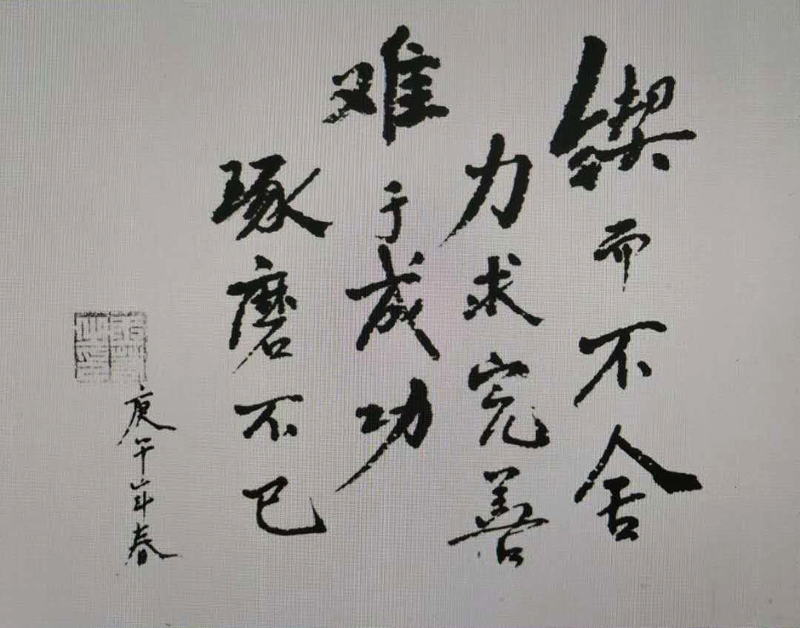 锲而不舍
力求完善
难于成功
琢磨不已
庚午年春